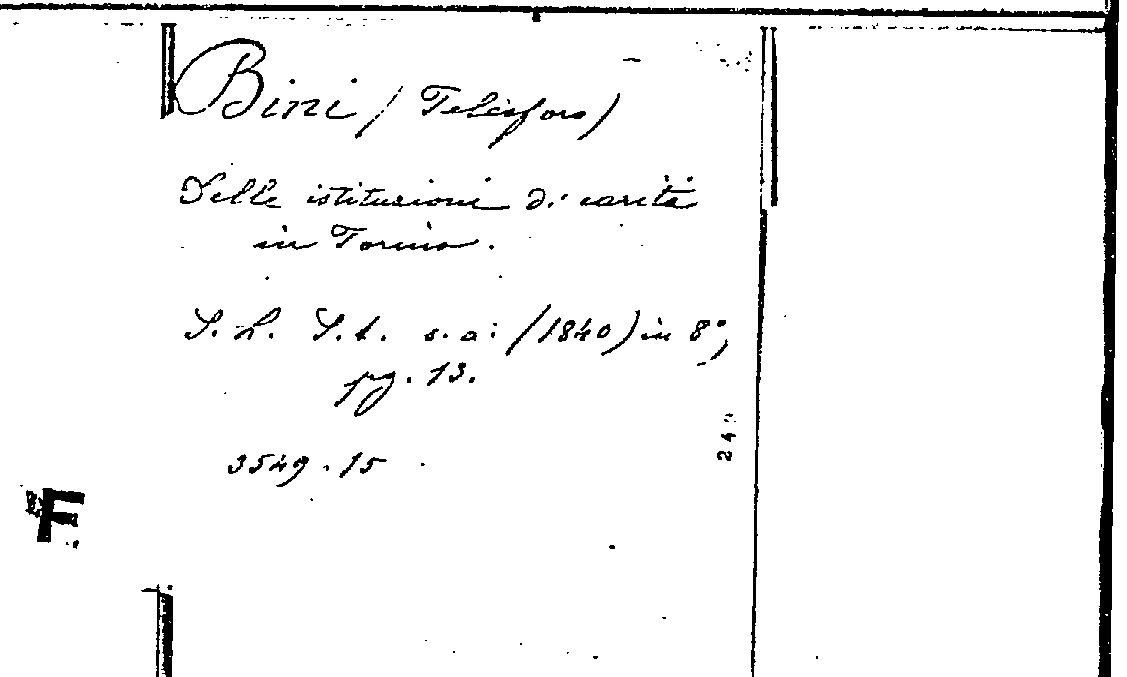 Bini (Telesforo)
Delle istituzioni di carità
in Torino.
S. L. S. t. s. a: (1840) in 8°,
pg. 13.
3549.15
F